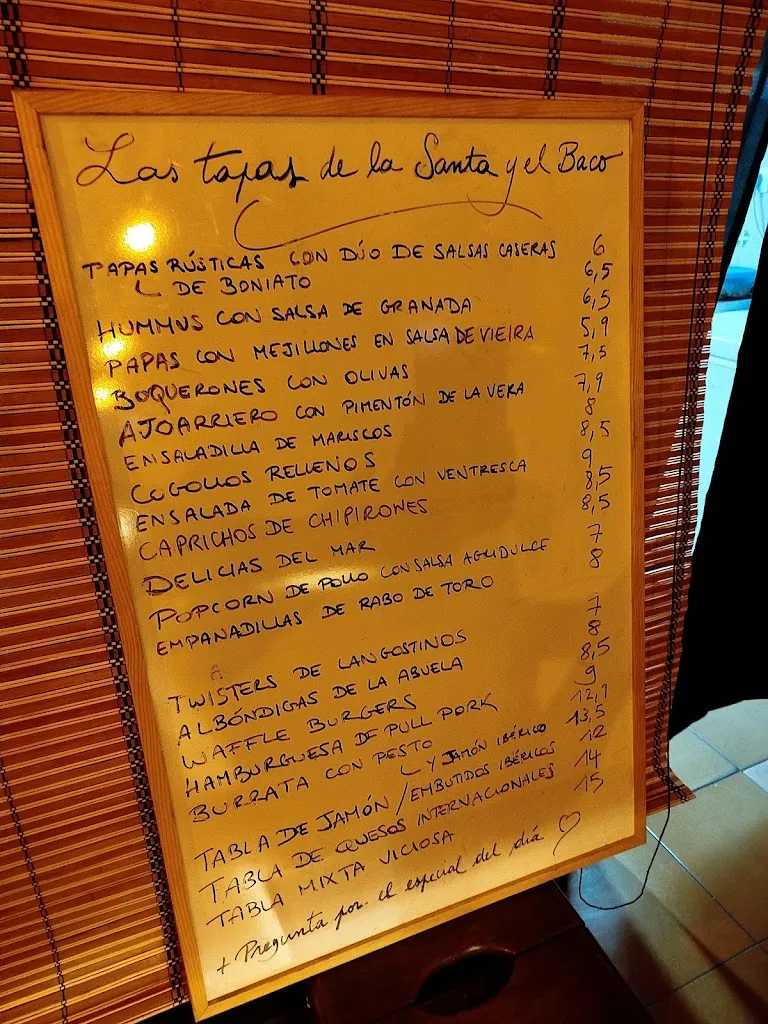 Las tapas de la Santa y el Baco
PAPAS RÚSTICAS CON DÚO DE SALSAS CASERAS 6
L DE BONIATO 6,5
HUMMUS CON SALSA DE GRANADA 6,5
PAPAS CON MEJILLONES EN SALSA DE VIEIRA 5,9
BOQUERONES CON OLIVAS 7,5
AJOARRIERO CON PIMENTÓN DE LA VERA 7,9
ENSALADILLA DE MARISCOS 8
COGOLLOS RELLENOS 8,5
ENSALADA DE TOMATE CON VENTRESCA 9
CAPRICHOS DE CHIPIRONES 8,5
DELICIAS DEL MAR 8,5
POPCORN DE POLLO CON SALSA AGRIDULCE 7
EMPANADILLAS DE RABO DE TORO 8
TWISTERS DE LANGOSTINOS 7
ALBÓNDIGAS DE LA ABUELA 8
WAFFLE BURGERS 8,5
HAMBURGUESA DE PULL PORK 9
BURRATA CON PESTO 12,9
L Y JAMÓN IBÉRICO 13,5
TABLA DE JAMÓN / EMBUTIDOS IBÉRICOS 12
TABLA DE QUESOS INTERNACIONALES 14
TABLA MIXTA VICIOSA 15
+ Pregunta por el especial del día ♡